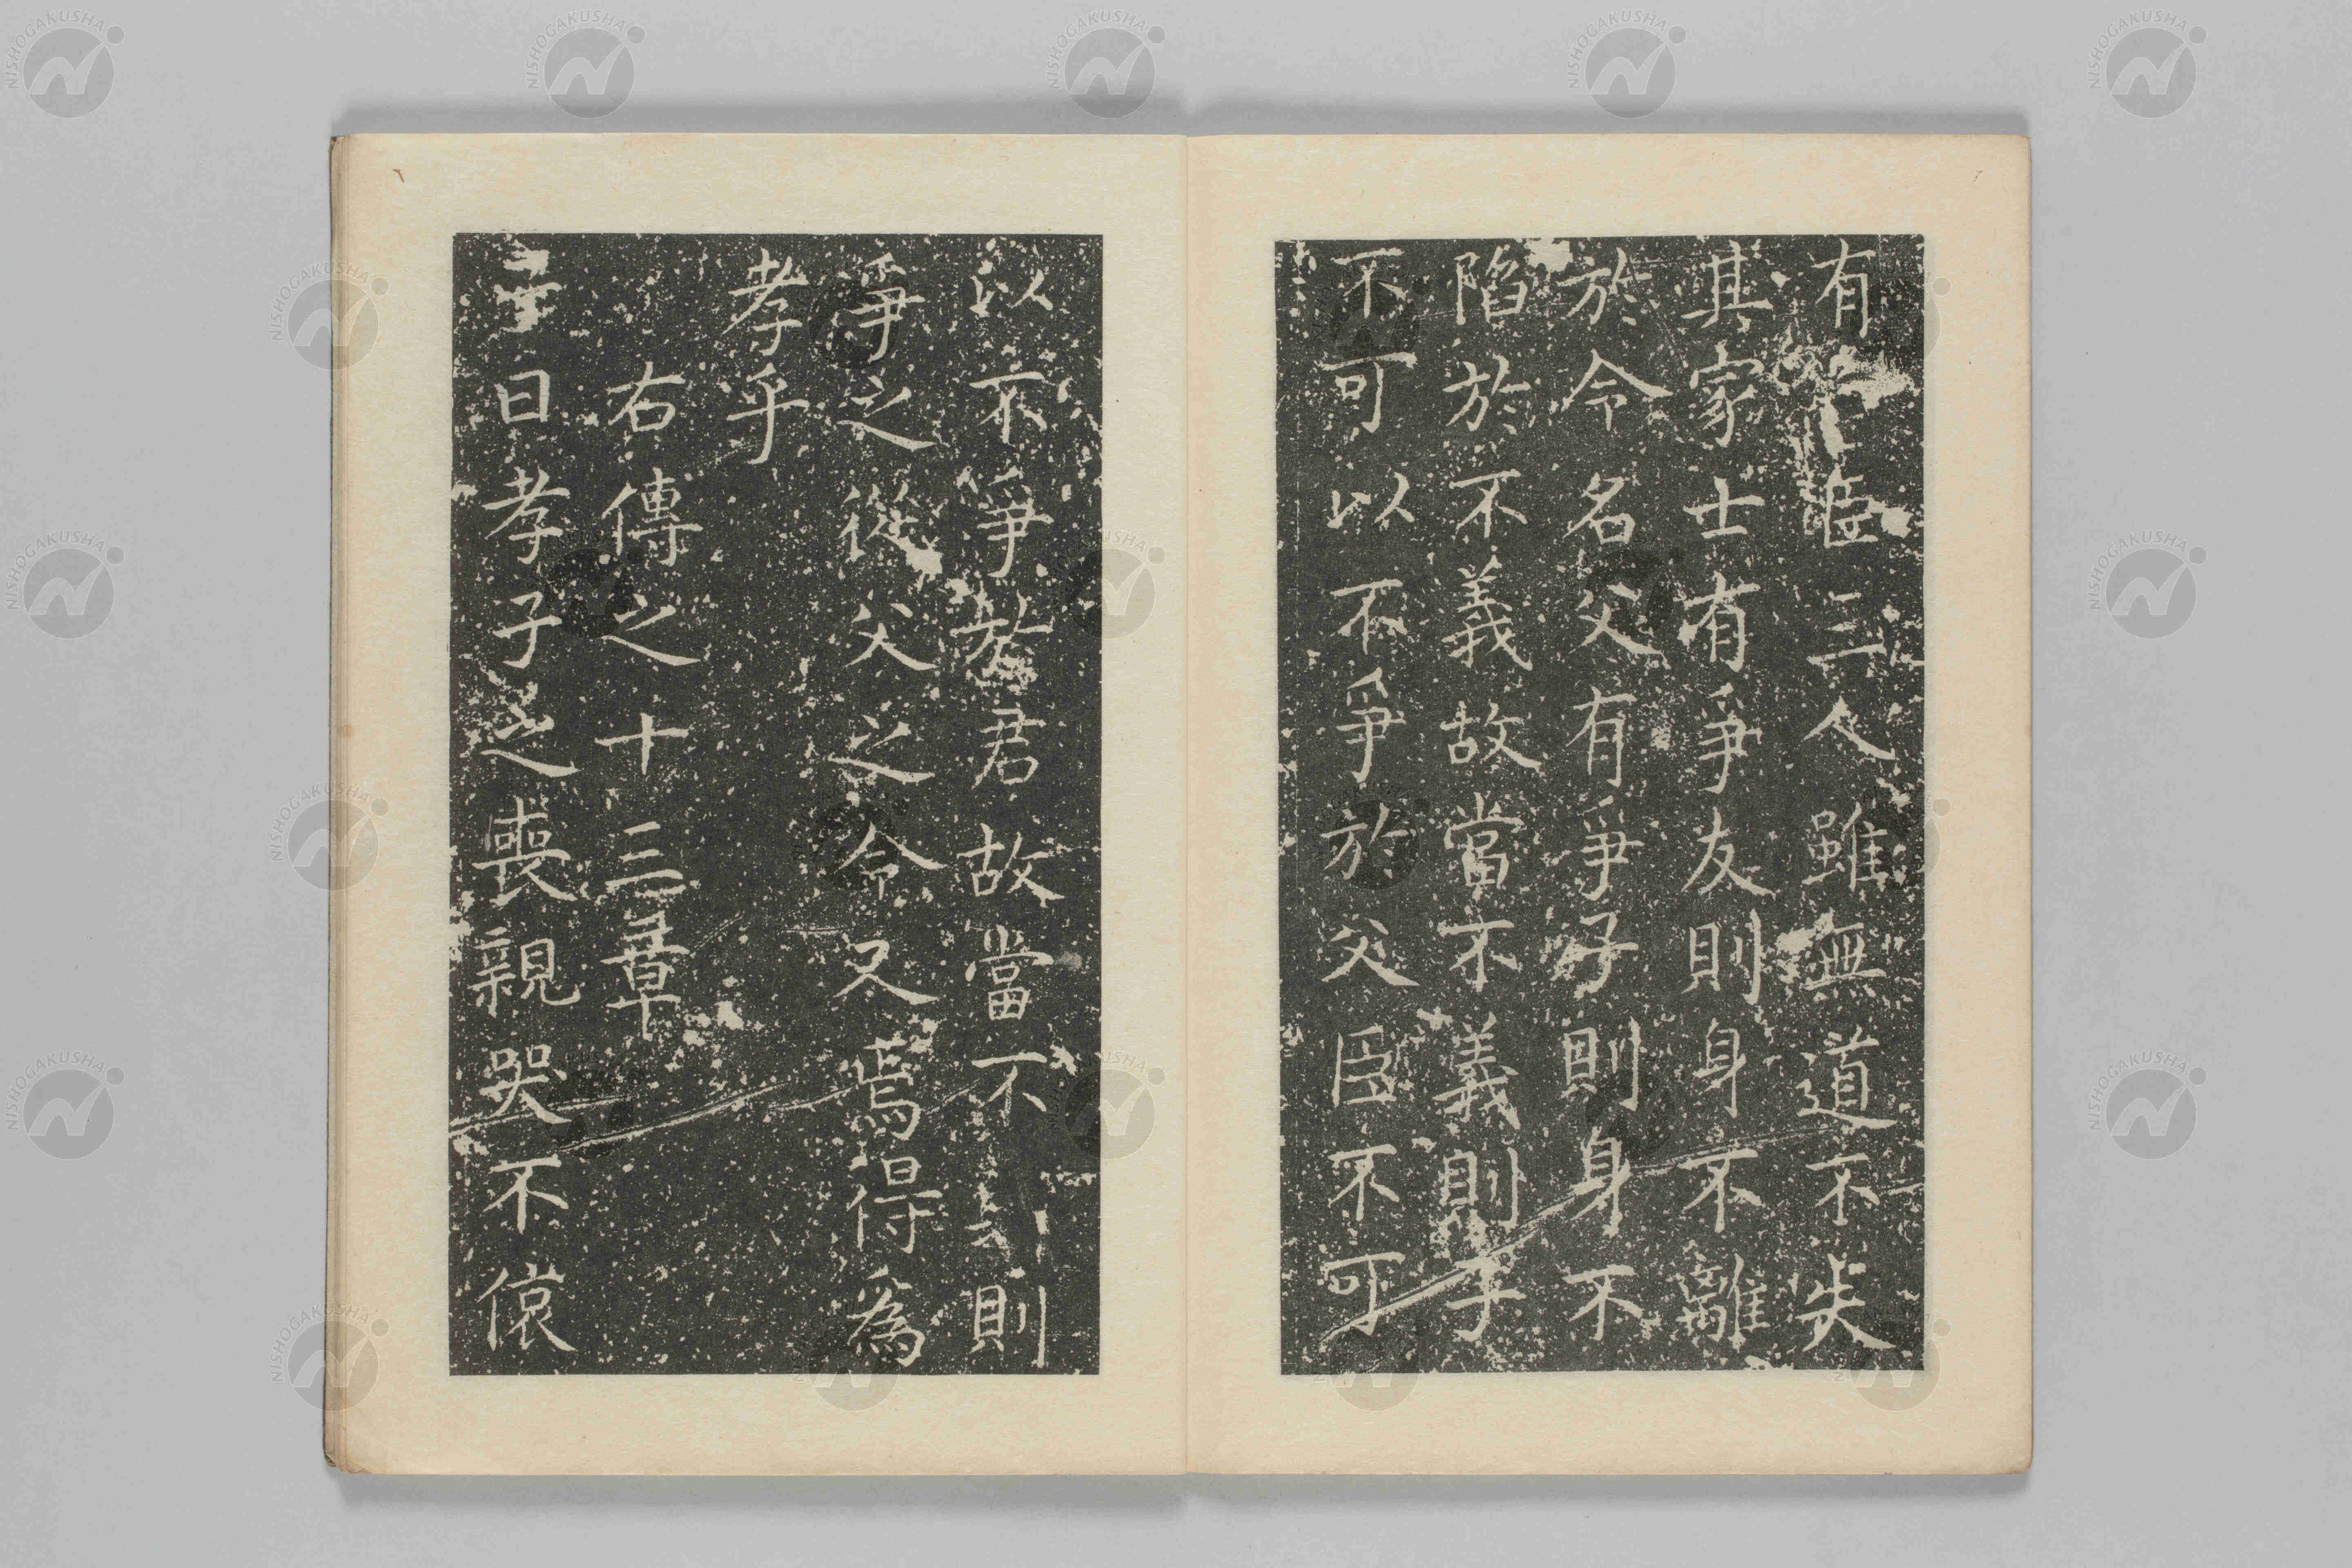 有臣三人雖無道不失
其家士有爭友則身不離
於令名父有爭子則身不
陷於不義故當不義則子
不可以不爭於父臣不可
以不爭於君故當不則
爭之從父之令又焉得爲
孝乎
右傳之十三章
曰孝子之喪親哭不偯
NISHOGAKUSHA